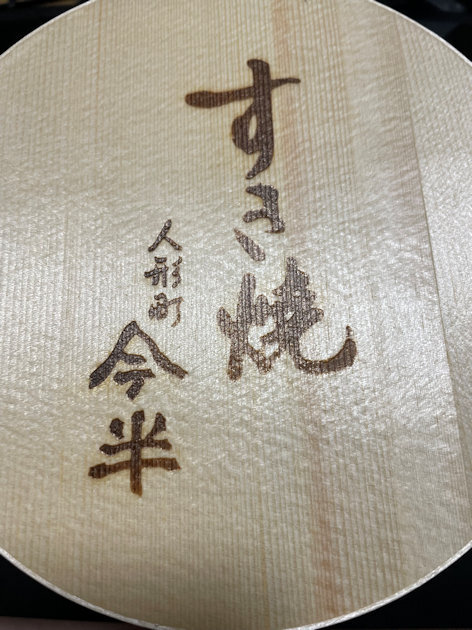 すき焼
人形町
今半